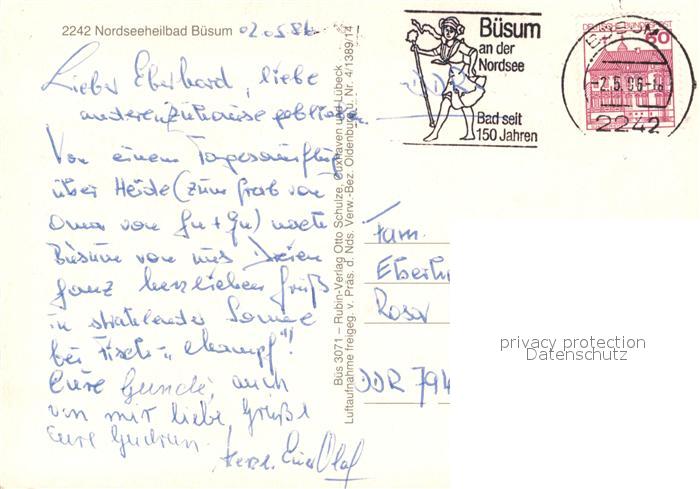 2242 Nordseeheilbad Büsum 02.05.86
Lieber Eberhard, liebe
anderen zuhause gebliebenen
Von einem Tagesausflug
über Heide (zum Grab von
Oma von Gu + Gu) nach
Büsum von uns Dreien
ganz herzlichen Gruß
in strahlender Sonne
bei Fisch- "Mampf"!
Eure Gunde, auch
von mir liebe Grüße
Eure Gudrun.
Herzl. Euer Olaf
Büs 3071 – Rubin-Verlag Otto Schulze, Cuxhaven und Lübeck
Luftaufnahme freigeg. v. Präs. d. Nds. Verw.-Bez. Oldenburg u. Nr. 4/1389/14
Büsum
an der
Nordsee
Bad seit
150 Jahren
DEUTSCHE BUNDESPOST
60
BÜSUM
-2.5.86-18
2242
Fam.
Eberh
DDR 794
privacy protection
Datenschutz